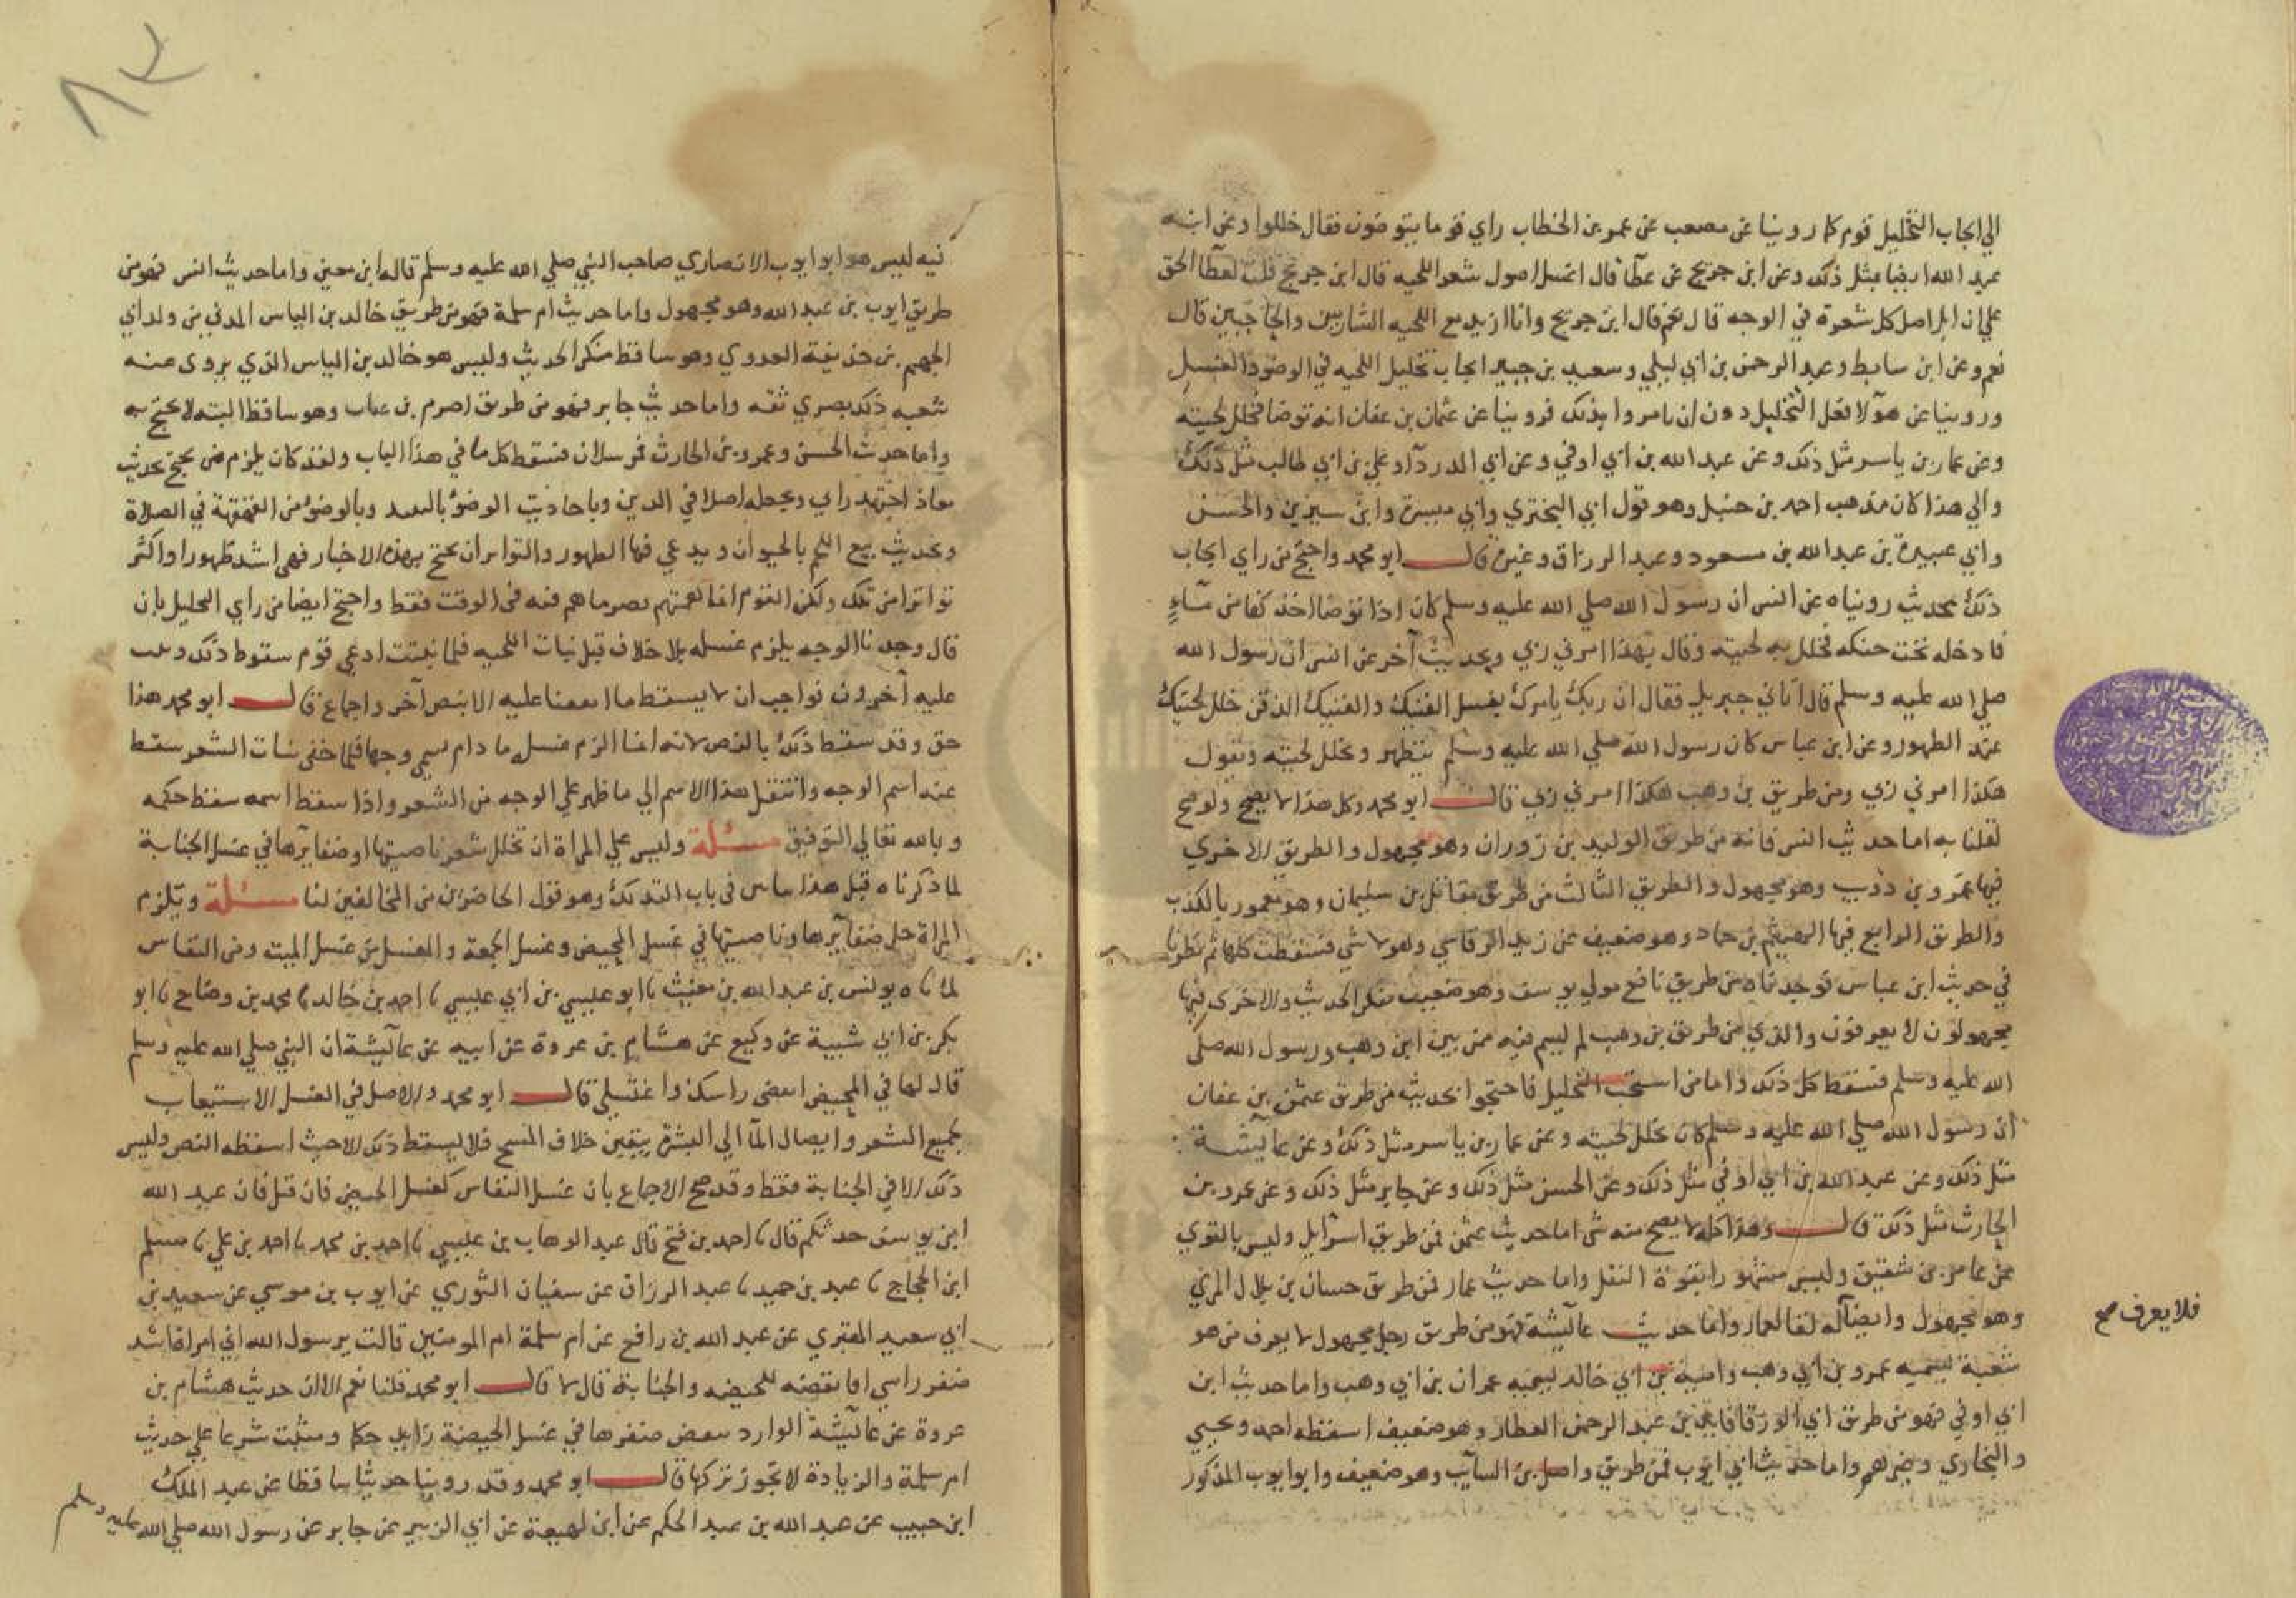 الى ايجاب التخليل قوم كما روينا عن مصعب عن عمر بن الخطاب راي قوما يتوضون فقال خللوا وعن ابنه
عبد الله ايضا مثل ذلك وعن ابن جريج عن عطآ قال اغسل اصول شعر اللحيه قال ابن جريج قلت لعطآ الحق
علي ان ابل اصل كل شعرة في الوجه قال نعم قال ابن جريج وانا ازيد مع اللحيه الشاربين والحاجبين قال
نعم وعن ابن سابط وعبد الرحمن بن ابي ليلي وسعيد بن جبير ايجاب تخليل اللحيه في الوضو والغسل
وروينا عن هولا فعل التخليل دون ان يامروا بذلك فروينا عن عثمان بن عفان انه توضا فخلل لحيته
وعن عمار بن ياسر مثل ذلك وعن عبد الله بن ابي اوفي وعن ابي الدردآ وعلي بن ابي طالب مثل ذلك
والي هذا كان مذهب احمد بن حنبل وهو قول ابي البختري وابي ميسرة وابن سيرين والحسن
وابي عبيدة بن عبد الله بن مسعود وعبد الرزاق وغيره قال ابو محمد واحتج من راي ايجاب
ذلك بحديث رويناه عن انس ان رسول الله صلي الله عليه وسلم كان اذا توضا اخذ كفا من مآء
فادخله تحت حنكه فخلل به لحيته وقال بهذا امرني ربي وبحديث آخر عن انس ان رسول الله
صلي الله عليه وسلم قال اتاني جبريل فقال ان ربك يامرك بغسل الفنيك والفنيك الذقن خلل لحيتك
عند الطهور وعن ابن عباس كان رسول الله صلي الله عليه وسلم يتطهر ويخلل لحيته ويقول
هكذا امرني ربي ومن طريق بن وهب هكذا امرني ربي قال ابو محمد وكل هذا لا يصح ولو صح
لقلنا به اما حديث انس فانه من طريق الوليد بن زوران وهو مجهول والطريق الاخري
فيها عمرو بن ذويب وهو مجهول والطريق الثالث من طريق مقاتل بن سليمان وهو مغمور بالكذب
والطريق الرابع فيها الهيثم بن حماد وهو ضعيف عن زيد الرقاشي وهو لا شي فسقطت كلها ثم نظرنا
في حديث ابن عباس فوجدناه من طريق نافع مولي يوسف وهو ضعيف منكر الحديث والاخرى فيها
مجهولون لا يعرفون والذي من طريق بن وهب لم يسم فيه من بين ابن وهب ورسول الله صلى
الله عليه وسلم فسقط كل ذلك واما من استحب التخليل فاحتجوا بحديث من طريق عثمن بن عفان
ان رسول الله صلي الله عليه وسلم كان يخلل لحيته وعن عمار بن ياسر مثل ذلك وعن عآئشة
مثل ذلك وعن عبد الله بن ابي اوفي مثل ذلك وعن الحسن مثل ذلك وعن جابر مثل ذلك وعن عمرو بن
الحارث مثل ذلك قال وهذا كله لا يصح منه شي اما حديث عثمن فمن طريق اسرايل وليس بالقوي
عن عامر بن شقيق وليس مشهورا بقوة النقل واما حديث عمار فمن طريق حسان بن بلال المزني
وهو مجهول وايضآ له لقا لعمار واما حديث عآئشة فهو من طريق رجل مجهول لا يعرف من هو
فلا يعرف صح
شعبة يسميه عمرو بن ابي وهب وامية بن ابي خالد يسميه عمران بن ابي وهب واما حديث ابن
ابي اوفي فهو من طريق ابي الورقا فايد بن عبد الرحمن العطار وهو ضعيف اسقطه احمد ويحيي
والبخاري وغيرهم واما حديث ابي ايوب فمن طريق واصل بن السآيب وهو ضعيف وابو ايوب المذكور
فيه ليس هو ابو ايوب الانصاري صاحب النبي صلي الله عليه وسلم قاله ابن معين واما حديث انس فهو من
طريق ايوب بن عبد الله وهو مجهول واما حديث ام سلمة فهو من طريق خالد بن الياس المدني من ولد ابي
الجهم بن حذيفة العدوي وهو ساقط منكر الحديث وليس هو خالد بن الياس الذي يروى عنه
شعبه ذلك بصري ثقه واما حديث جابر فهو من طريق اصرم بن غياب وهو ساقط البته لا يحتج به
واما حديث الحسن وعمرو بن الحارث فمرسلان فسقط كل ما في هذا الباب ولقد كان يلزم من يحتج بحديث
معاذ اجتهد راي ويجعله اصلا في الدين وباحاديث الوضؤ بالنبيد وبالوضؤ من القهقهة في الصلاة
وبحديث بيع اللحم بالحيوان ويدعي فيها الظهور والتواتر ان يحتج بهذه الاخبار فهي اشد ظهورا واكثر
تواترا من تلك ولكن القوم انما همتهم نصر ما هم فيه في الوقت فقط واحتج ايضا من راي التخليل بان
قال وجدنا الوجه يلزم غسله بلا خلاف قبل نبات اللحيه فلما نبتت ادعي قوم سقوط ذلك وثبت
عليه آخرون فواجب ان لا يسقط ما اتفقنا عليه الا بنص آخر واجماع قال ابو محمد هذا
حق وقد سقط ذلك بالنص لانه انما الزم غسله ما دام يسمي وجها فلما خفي بنبات الشعر سقط
عنه اسم الوجه وانتقل هذا الاسم الي ما ظهر علي الوجه من الشعر واذا سقط اسمه سقط حكمه
وبالله تعالي التوفيق مسئلة وليس علي المراة ان تخلل شعر ناصيتها او ضفايرها في غسل الجنابة
لما ذكرناه قبل هذا في باب التدلك وهو قول الحاضرين من المخالفين لنا مسئلة ويلزم
المراة حل ضفآيرها وناصيتها في غسل المحيض وغسل الجمعة والغسل من غسل الميت ومن النفاس
لما نا ه يونس بن عبد الله بن مغيث نا ابو عيسي بن ابي عيسي نا احمد بن خالد نا محمد بن وضاح نا ابو
بكر بن ابي شيبة عن وكيع عن هشام بن عروة عن ابيه عن عآئشة ان النبي صلي الله عليه وسلم
قال لها في المحيض انقضى راسك واغتسلي قال ابو محمد والاصل في الغسل الاستيعاب
لجميع الشعر وايصال المآ الي البشرة بيقين خلاف المسح فلا يسقط ذلك الا حيث اسقطه النص وليس
ذلك الا في الجنابة فقط وقد صح الاجماع بان غسل النفاس كغسل الحيض فان قيل فان عبد الله
ابن يوسف حدثكم قال نا احمد بن فتح قال عبد الوهاب بن عيسي نا احمد بن محمد نا احمد بن علي نا مسلم
ابن الحجاج نا عبد بن حميد نا عبد الرزاق عن سفيان الثوري عن ايوب بن موسي عن سعيد بن
ابي سعيد المقبري عن عبد الله بن رافع عن ام سلمة ام المومنين قالت يرسول الله اني امراة اشد
ضفر راسي افانقضه للحيضه والجنابة قال لا قال ابو محمد قلنا نعم الا ان حديث هشام بن
عروة عن عآئشة الوارد بنقض ضفرها في غسل الحيضة زايد حكما ومثبت شرعا علي حديث
ام سلمة والزيادة لا تجوز تركها قال ابو محمد وقد روينا حديثا ساقطا عن عبد الملك
ابن حبيب عن عبد الله بن عبد الحكم عن ابن لهيعة عن ابي الزبير عن جابر عن رسول الله صلي الله عليه وسلم